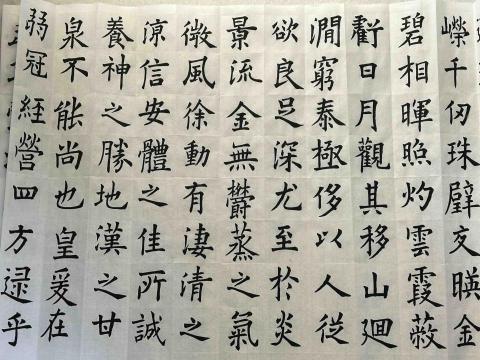 嶸千仞珠璧交暎金
碧相暉照灼雲霞蔽
虧日月觀其移山迴
澗窮泰極侈以人從
欲良足深尤至於炎
景流金無鬱蒸之氣
微風徐動有淒清之
涼信安體之佳所誠
養神之勝地漢之甘
泉不能尚也皇爰在
弱冠經營四方逮乎